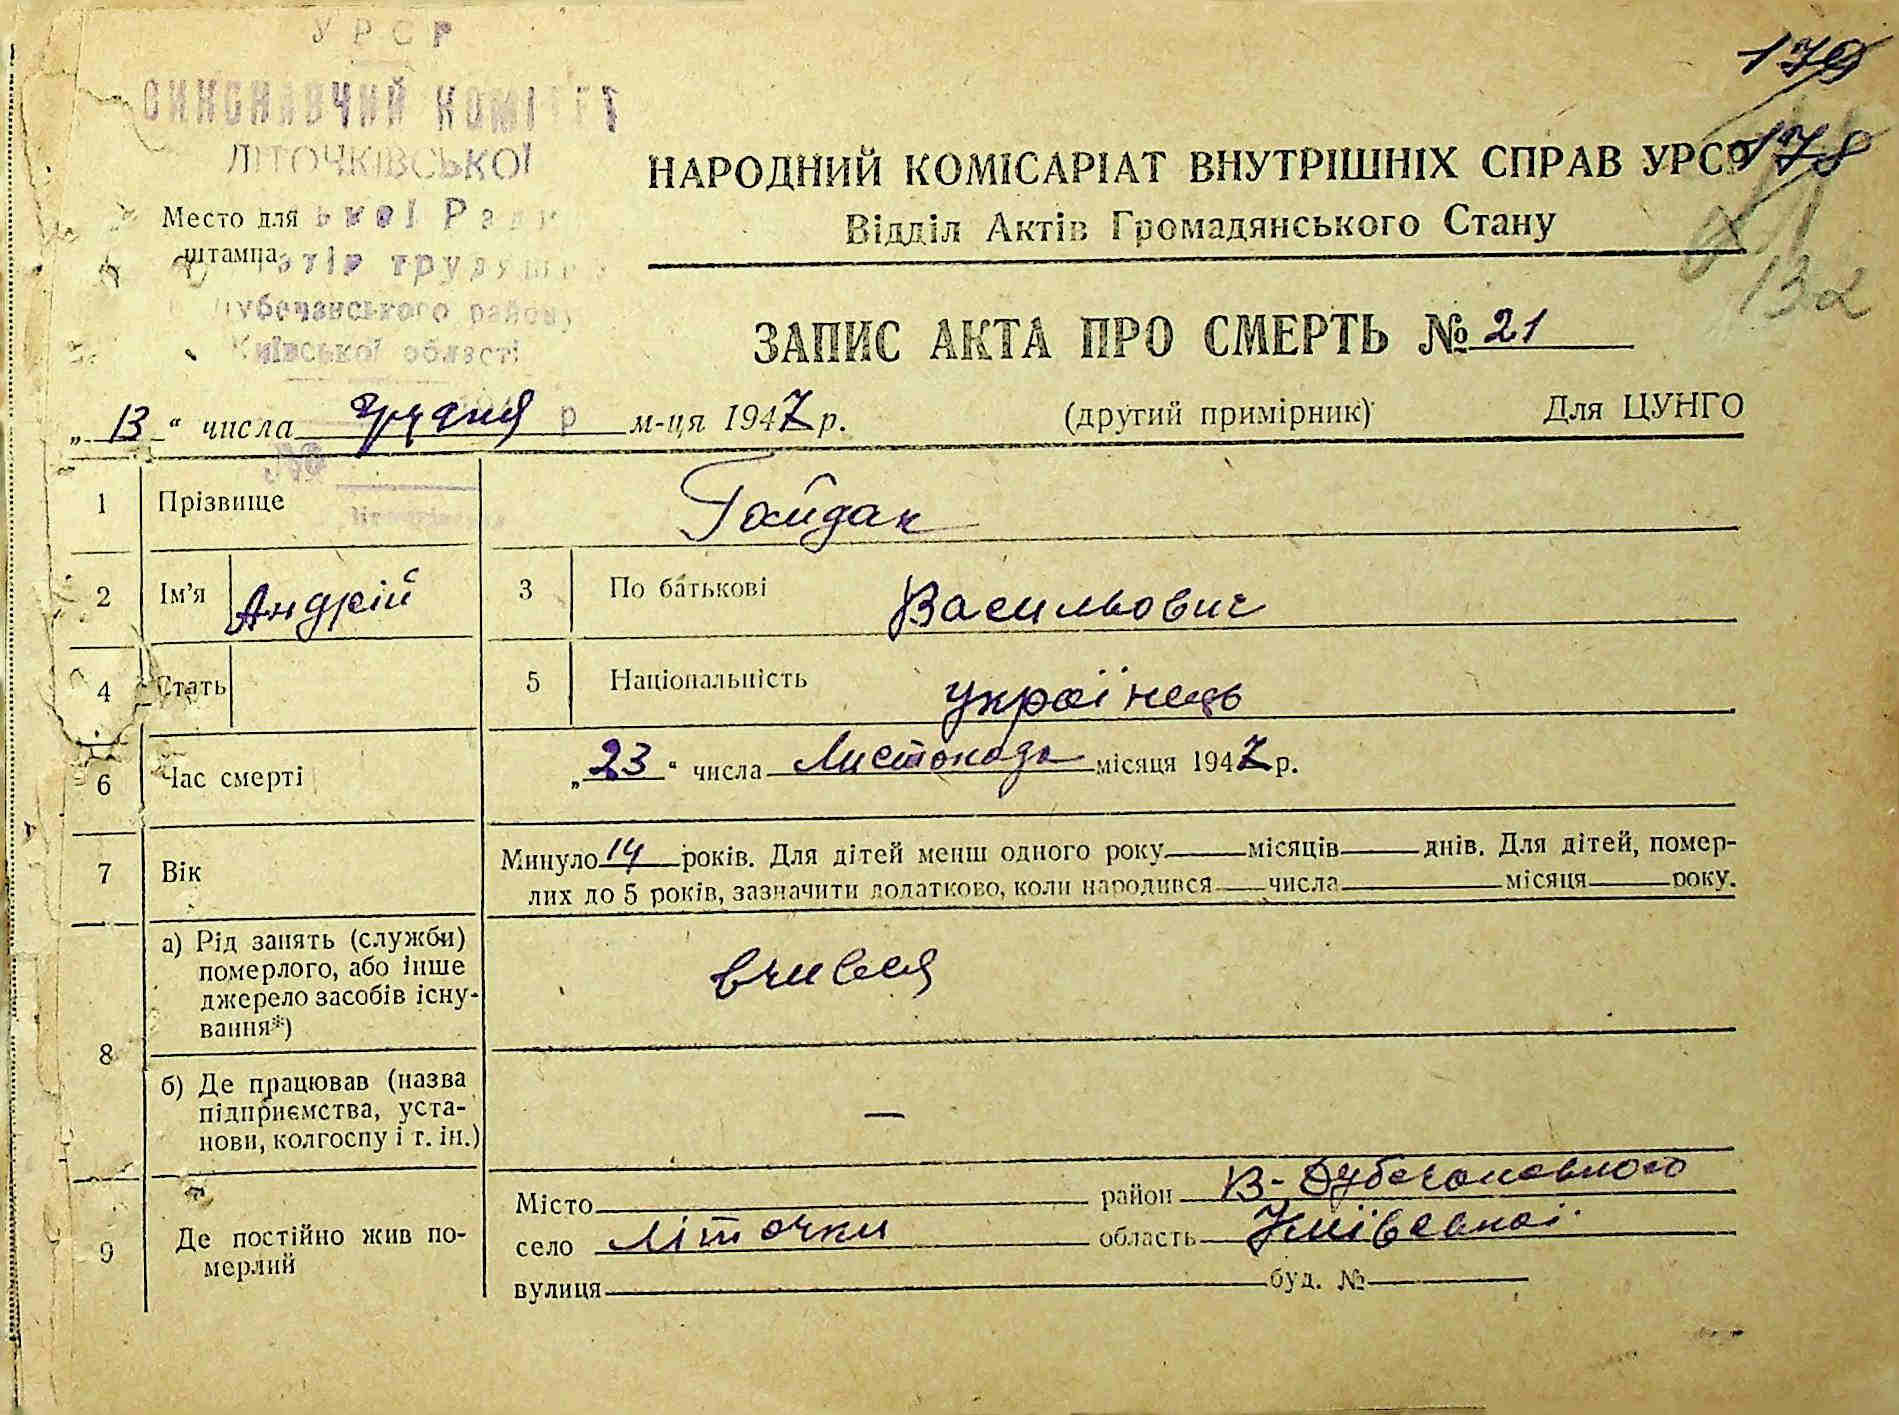 УРСР
ВИКОНАВЧИЙ КОМІТЕТ
ЛІТОЧКІВСЬКОЇ
179
178
132
НАРОДНИЙ КОМІСАРІАТ ВНУТРІШНІХ СПРАВ УРСР
Відділ Актів Громадянського Стану
Место для
штампа
Київської області
ЗАПИС АКТА ПРО СМЕРТЬ № 21
„ 13 “ числа грудня м-ця 1947 р. (другий примірник) Для ЦУНГО
№
1 Прізвище Гайдак
2 Ім'я Андрій 3 По батькові Васильович
4 Стать 5 Національність українець
6 Час смерті „ 23 “ числа Листопада місяця 1947 р.
7 Вік Минуло 14 років. Для дітей менш одного року місяців днів. Для дітей, помер-
лих до 5 років, зазначити додатково, коли народився числа місяця року.
8 а) Рід занять (служби)
померлого, або інше
джерело засобів існу-
вання*)
вчився
б) Де працював (назва
підприємства, уста-
нови, колгоспу і т. ін.)
—
9 Де постійно жив по-
мерлий
Місто район В-Дубечанського
село Літочки область Київської
вулиця буд. №